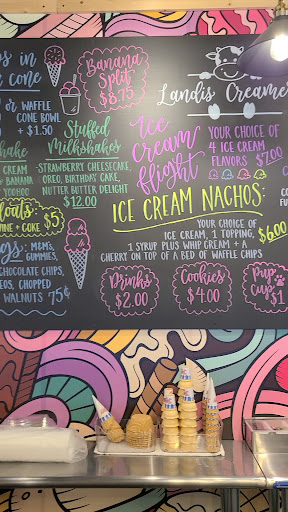 ps in
cone
or WAFFLE
CONE BOWL
+ $1.50
hake
CREAM
+ BANANA
YOOHOO
loats:
INE + COKE $5
gs: M&M'S,
GUMMIES,
CHOCOLATE CHIPS,
EOS, CHOPPED
WALNUTS 75¢
Banana
Split
$8.75
Stuffed
Milkshakes
STRAWBERRY CHEESECAKE,
OREO, BIRTHDAY CAKE,
NUTTER BUTTER DELIGHT
$12.00
Ice
Cream
flight
Landis Creamer
YOUR CHOICE OF
4 ICE CREAM
FLAVORS $7.00
ICE CREAM NACHOS:
YOUR CHOICE OF
ICE CREAM, 1 TOPPING,
1 SYRUP PLUS WHIP CREAM + A
CHERRY ON TOP OF A BED OF WAFFLE CHIPS
$6.00
Drinks
$2.00
Cookies
$4.00
Pup
Cup
$1